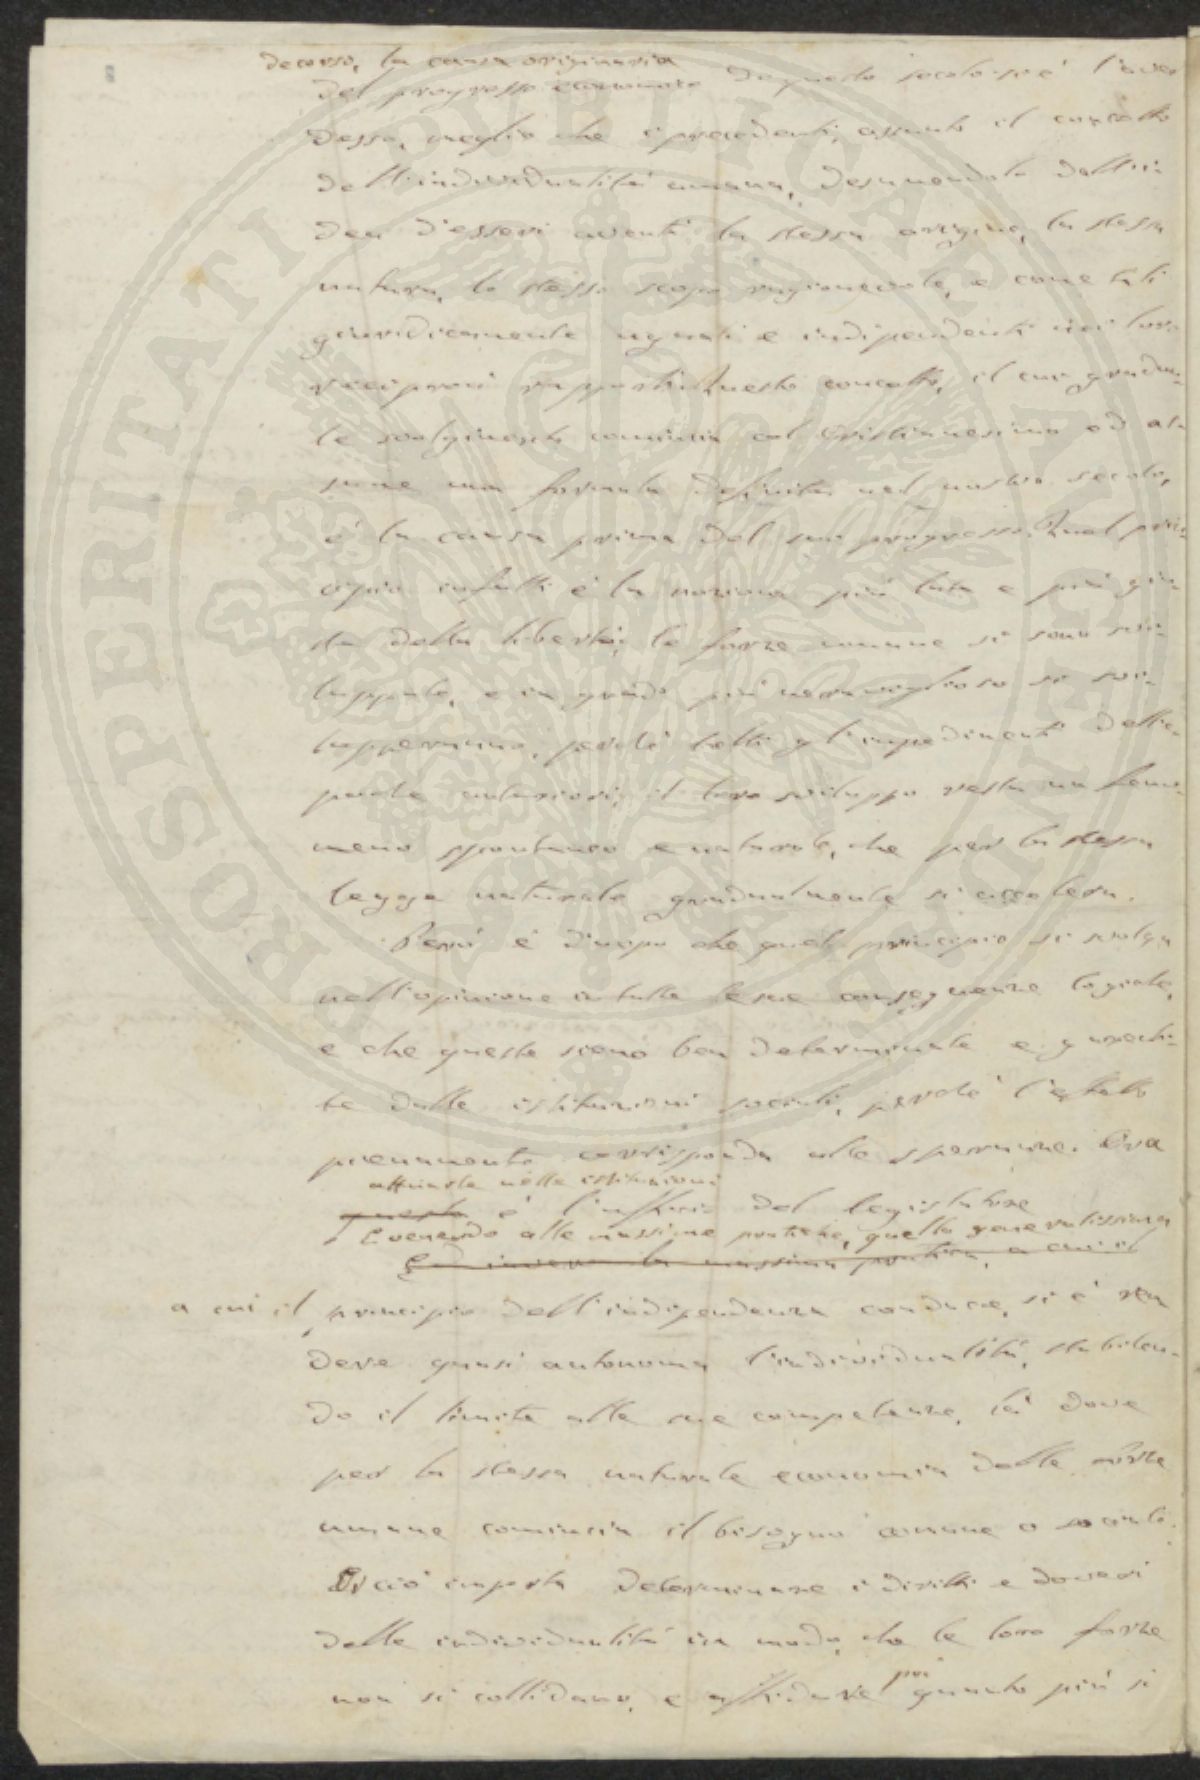 decorso, la causa originaria
del progresso economico di questo secolo si è l'aver
desso, meglio che i precedenti, assunto il concetto
dell'individualità umana, desumendolo dall'i-
dea d'esseri aventi la stessa origine, la stessa
natura, lo stesso scopo ragionevole, e come tali
giuridicamente uguali e indipendenti nei loro
reciproci rapporti. Questo concetto, il cui gradua-
le svolgimento comincia col Cristianesimo ed as-
sume una formula definita nel nostro secolo,
è la causa prima del suo progresso. Quel prin-
cipio infatti è la nozione più lata e più giu-
sta della libertà; le forze umane si sono svi-
luppate, e in grado più meraviglioso si svi-
lupperanno, perchè tolti gl'impedimenti delle
epoche anteriori, il loro sviluppo resta un feno-
meno spontaneo e naturale, che per la stessa
legge naturale gradualmente si accelera.
Però è d'uopo che quel principio si svolga
nell'opinione in tutte le sue conseguenze logiche,
e che queste sieno ben determinate e guarenti-
te dalle istituzioni sociali, perchè l'effetto
pienamente corrisponda alle speranze. Ora
attuarle nelle istituzioni
questo è l'ufficio del legislatore
Evenendo alle massime pratiche, quella generalissima
Ed invero la massima pratica, a cui il
a cui il principio dell'indipendenza conduce, si è ren
dere quasi autonoma l'individualità, stabilen-
do il limite alle sue competenze, là dove
per la stessa naturale economia delle forze
umane comincia il bisogno comune o sociale.
Di ciò importa determinare i diritti e doveri
delle individualità in modo, che le loro forze
non si collidano, e affidare poi quanto più si